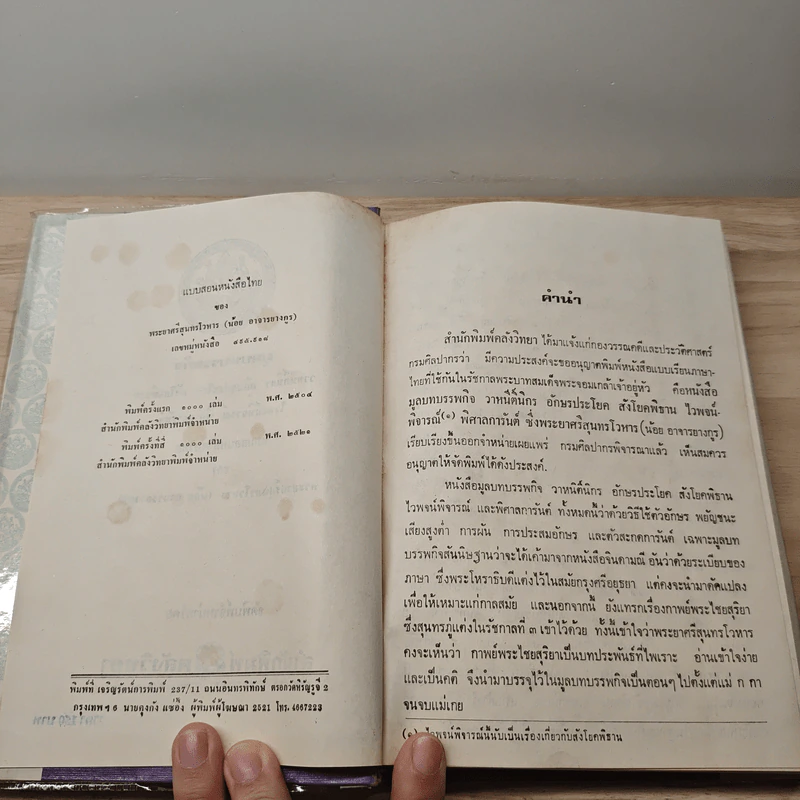 แบบสอนหนังสือไทย
ของ
พระยาศรีสุนทรโวหาร (น้อย อาจารยางกูร)
เลขหมู่หนังสือ ๔๙๕.๙๑๘
พิมพ์ครั้งแรก ๑๐๐๐ เล่ม พ.ศ. ๒๕๐๔
สำนักพิมพ์คลังวิทยาพิมพ์จำหน่าย
พิมพ์ครั้งที่สี่ ๑๐๐๐ เล่ม พ.ศ. ๒๕๒๑
สำนักพิมพ์คลังวิทยาพิมพ์จำหน่าย
พิมพ์ที่ เจริญรัตน์การพิมพ์ 237/11 ถนนอินทรพิทักษ์ ตรอกวัดหิรัญรูจี 2
กรุงเทพฯ 6 นายคุงกัง แซ่อึ้ง ผู้พิมพ์ผู้โฆษณา 2521 โทร. 4667223
คำนำ
สำนักพิมพ์คลังวิทยา ได้มาแจ้งแก่กองวรรณคดีและประวัติศาสตร์
กรมศิลปากรว่า มีความประสงค์จะขออนุญาตพิมพ์หนังสือแบบเรียนภาษา-
ไทยที่ใช้กันในรัชกาลพระบาทสมเด็จพระจอมเกล้าเจ้าอยู่หัว คือหนังสือ
มูลบทบรรพกิจ วาหนิติ์นิกร อักษรประโยค สังโยคพิธาน ไวพจน์-
พิจารณ์(๑) พิศาลการันต์ ซึ่งพระยาศรีสุนทรโวหาร (น้อย อาจารยางกูร)
เรียบเรียงขึ้นออกจำหน่ายเผยแพร่ กรมศิลปากรพิจารณาแล้ว เห็นสมควร
อนุญาตให้จัดพิมพ์ได้ดังประสงค์.
หนังสือมูลบทบรรพกิจ วาหนิติ์นิกร อักษรประโยค สังโยคพิธาน
ไวพจน์พิจารณ์ และพิศาลการันต์ ทั้งหมดนี้ว่าด้วยวิธีใช้ตัวอักษร พยัญชนะ
เสียงสูงต่ำ การผัน การประสมอักษร และตัวสะกดการันต์ เฉพาะมูลบท
บรรพกิจสันนิษฐานว่าจะได้เค้ามาจากหนังสือจินดามณี อันว่าด้วยระเบียบของ
ภาษา ซึ่งพระโหราธิบดีแต่งไว้ในสมัยกรุงศรีอยุธยา แต่คงจะนำมาดัดแปลง
เพื่อให้เหมาะแก่กาลสมัย และนอกจากนี้ ยังแทรกเรื่องกาพย์พระไชยสุริยา
ซึ่งสุนทรภู่แต่งในรัชกาลที่ ๓ เข้าไว้ด้วย ทั้งนี้เข้าใจว่าพระยาศรีสุนทรโวหาร
คงจะเห็นว่า กาพย์พระไชยสุริยาเป็นบทประพันธ์ที่ไพเราะ อ่านเข้าใจง่าย
และเป็นคติ จึงนำมาบรรจุไว้ในมูลบทบรรพกิจเป็นตอนๆ ไปตั้งแต่แม่ ก กา
จนจบแม่เกย
(๑) ไวพจน์พิจารณ์นี้นับเป็นเรื่องเกี่ยวกับสังโยคพิธาน